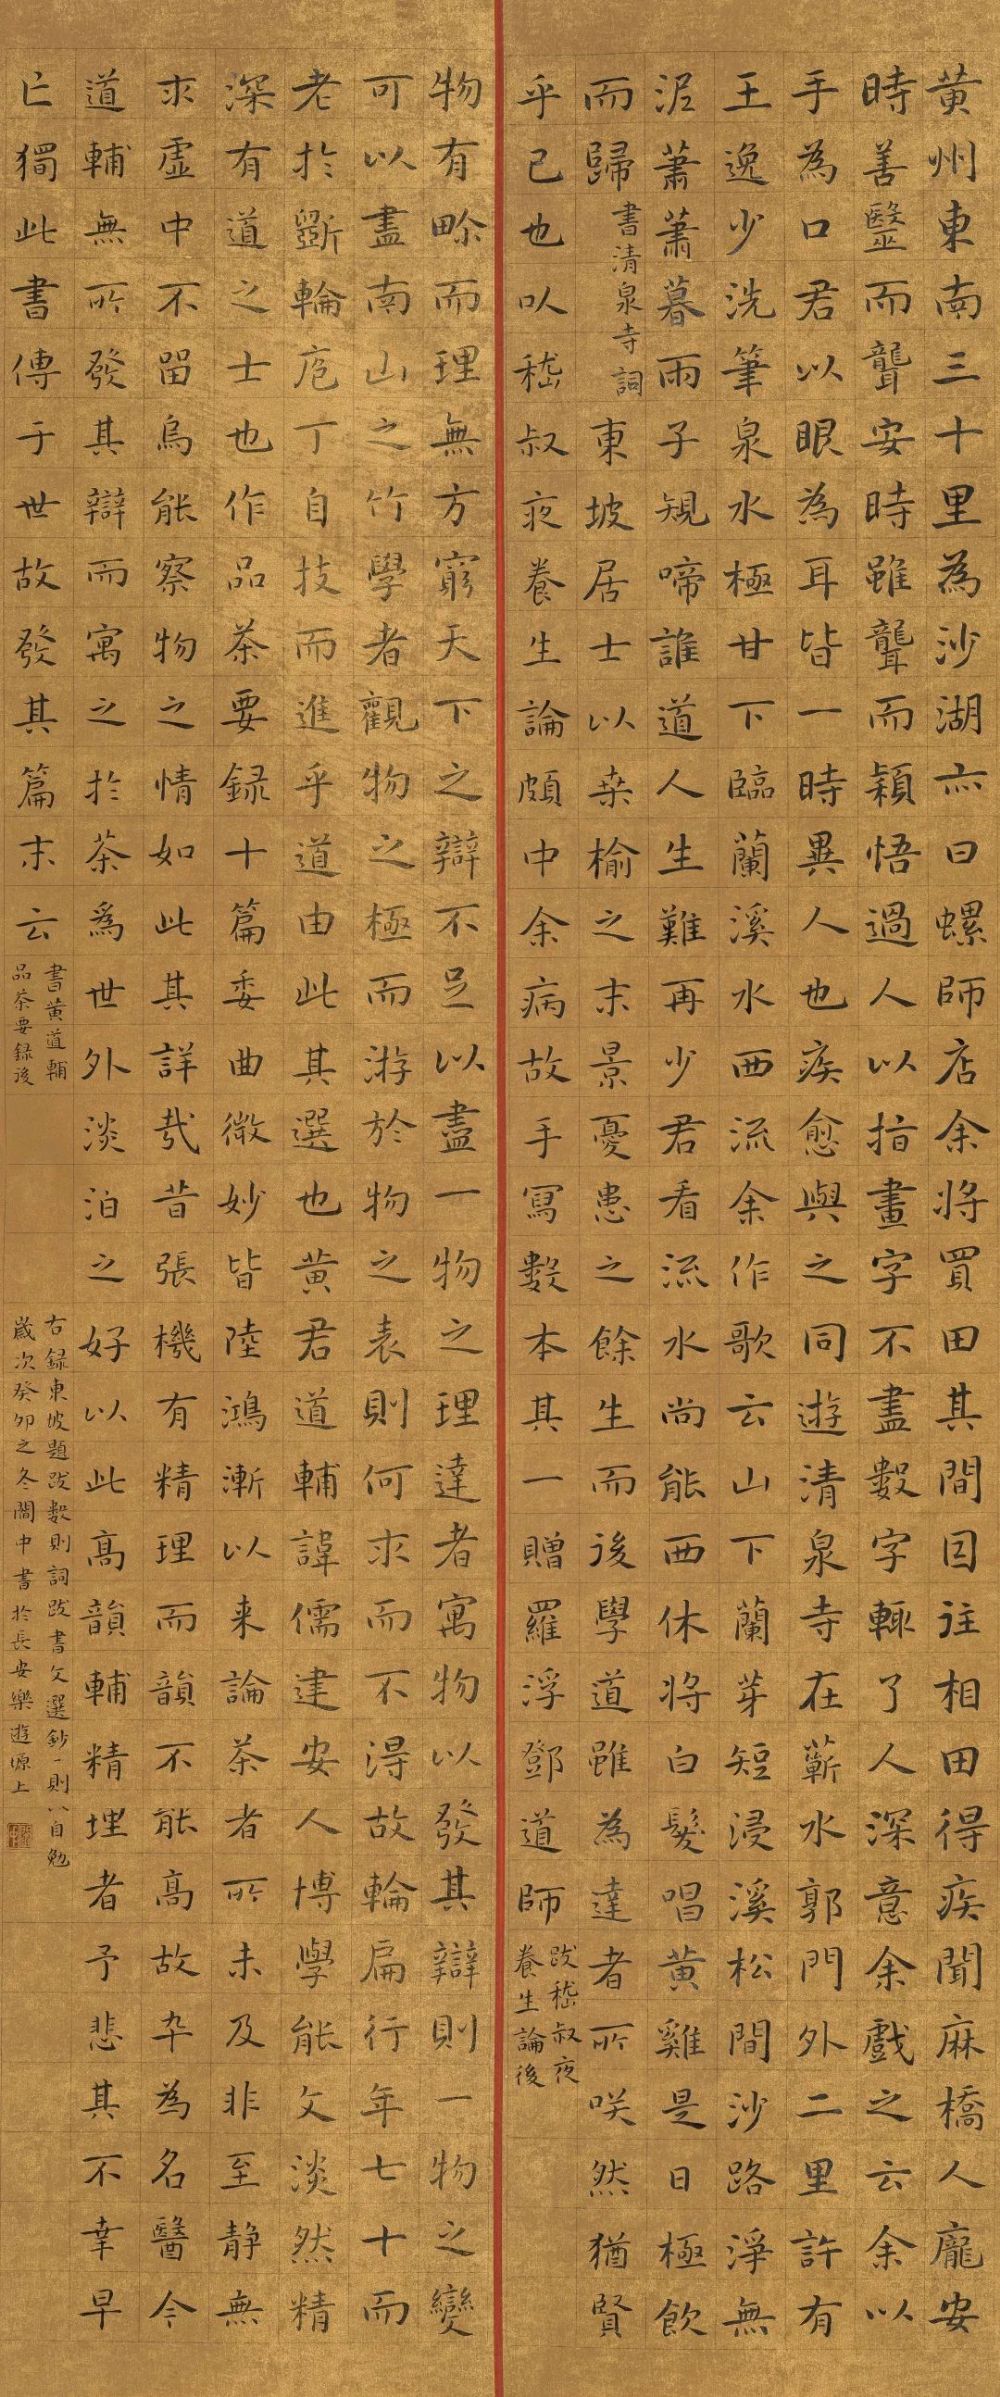 黃州東南三十里為沙湖亦曰螺師店余將買田其間因往相田得疾聞麻橋人龐安
時善毉而聾安時雖聾而穎悟過人以指畫字不盡數字輒了人深意余戲之云余以
手為口君以眼為耳皆一時異人也疾愈與之同遊清泉寺在蘄水郭門外二里許有
王逸少洗筆泉水極甘下臨蘭溪水西流余作歌云山下蘭芽短浸溪松間沙路淨無
泥蕭蕭暮雨子規啼誰道人生難再少君看流水尚能西休將白髮唱黃雞是日極飲
而歸
書清泉寺詞
東坡居士以桑榆之末景憂患之餘生而後學道雖為達者所咲然猶賢
乎已也以嵇叔夜養生論頗中余病故手寫數本其一贈羅浮鄧道師
跋嵇叔夜
養生論後
物有畛而理無方窮天下之辯不足以盡一物之理達者寓物以發其辯則一物之變
可以盡南山之竹學者觀物之極而游於物之表則何求而不得故輪扁行年七十而
老於斲輪庖丁自技而進乎道由此其選也黃君道輔諱儒建安人博學能文淡然精
深有道之士也作品茶要録十篇委曲微妙皆陸鴻漸以来論茶者所未及非至靜無
求虛中不留烏能察物之情如此其詳哉昔張機有精理而韻不能高故卒為名醫今
道輔無所發其辯而寓之於茶為世外淡泊之好以此高韻輔精理者予悲其不幸早
亡獨此書傳于世故發其篇末云
書黃道輔
品茶要録後
右録東坡題跋數則詞跋書文選鈔一則以自勉
歲次癸卯之冬閻中書於長安樂遊塬上